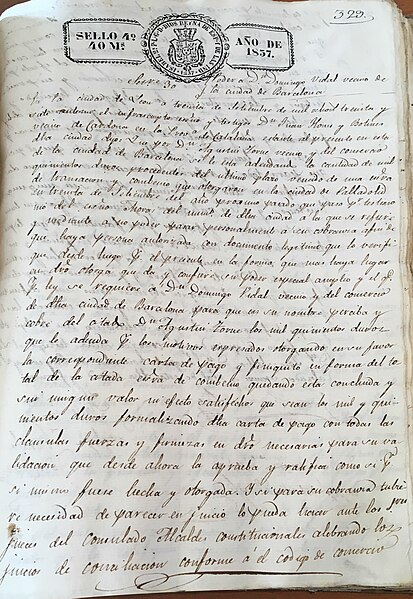 323.
SELLO 4º
40 Ms
AÑO DE
1837.
Poder a Dn Domingo Vidal vecino de
la ciudad de Barcelona
la ciudad de Leon a treinta de Setiembre de mil ochocientos treinta y
siete ante mi el infrascripto y testigos Dn Juan Flons y
vecino de Cardona en la de Cataluña estante al presente en esta
dha ciudad Dijo que por Dn Agustin Torne vecino y del comercio
de la ciudad de Barcelona se le esta adeudando la cantidad de mil
quinientos duros procedentes del ultimo plazo vencido de una
de transacion y convenio que otorgaron en la ciudad de Valladolid
en treinta de Setiembre del año proximo pasado que pasó por testimo
nio del esno de dha ciudad a la que se refiere
y mediante a no poder pasar personalmente a su cobranza afin de
que haya persona autorizada con documento legitimo que lo verifi
que desde luego por el presente en la forma que mas haya lugar
en dro otorga que da y confiere su poder especial amplio y el que
por ley se requiere a Dn Domingo Vidal vecino y del comercio
de dha ciudad de Barcelona para que en su nombre perciba y
cobre del citado Dn Agustin Torne los mil quinientos duros
que le adeuda por los motivos expresados otorgando en su favor
la correspondiente carta de pago y finiquito en forma del to
tal de la citada esra de convenio quedando esta concluida y
sin ningun valor ni efecto satisfechos que sean los mil y qui
nientos duros formalizando dha carta de pago con todas las
clausulas fuerzas y firmezas en dro necesarias para su va
lidacion, que desde ahora la aprueba y ratifica como si por
si mismo fuese hecha y otorgada. Y si para su cobranza tubie
re necesidad de parecer en juicio lo pueda hacer ante los Sres
Jueces del Consulado Alcaldes constitucionales celebrando los
juicios de conciliacion conforme á el codigo de comercio